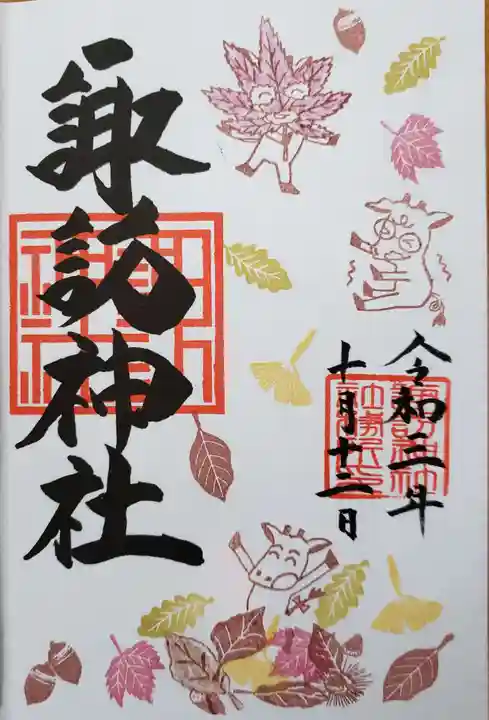 諏訪神社
令和三年
十月十二日